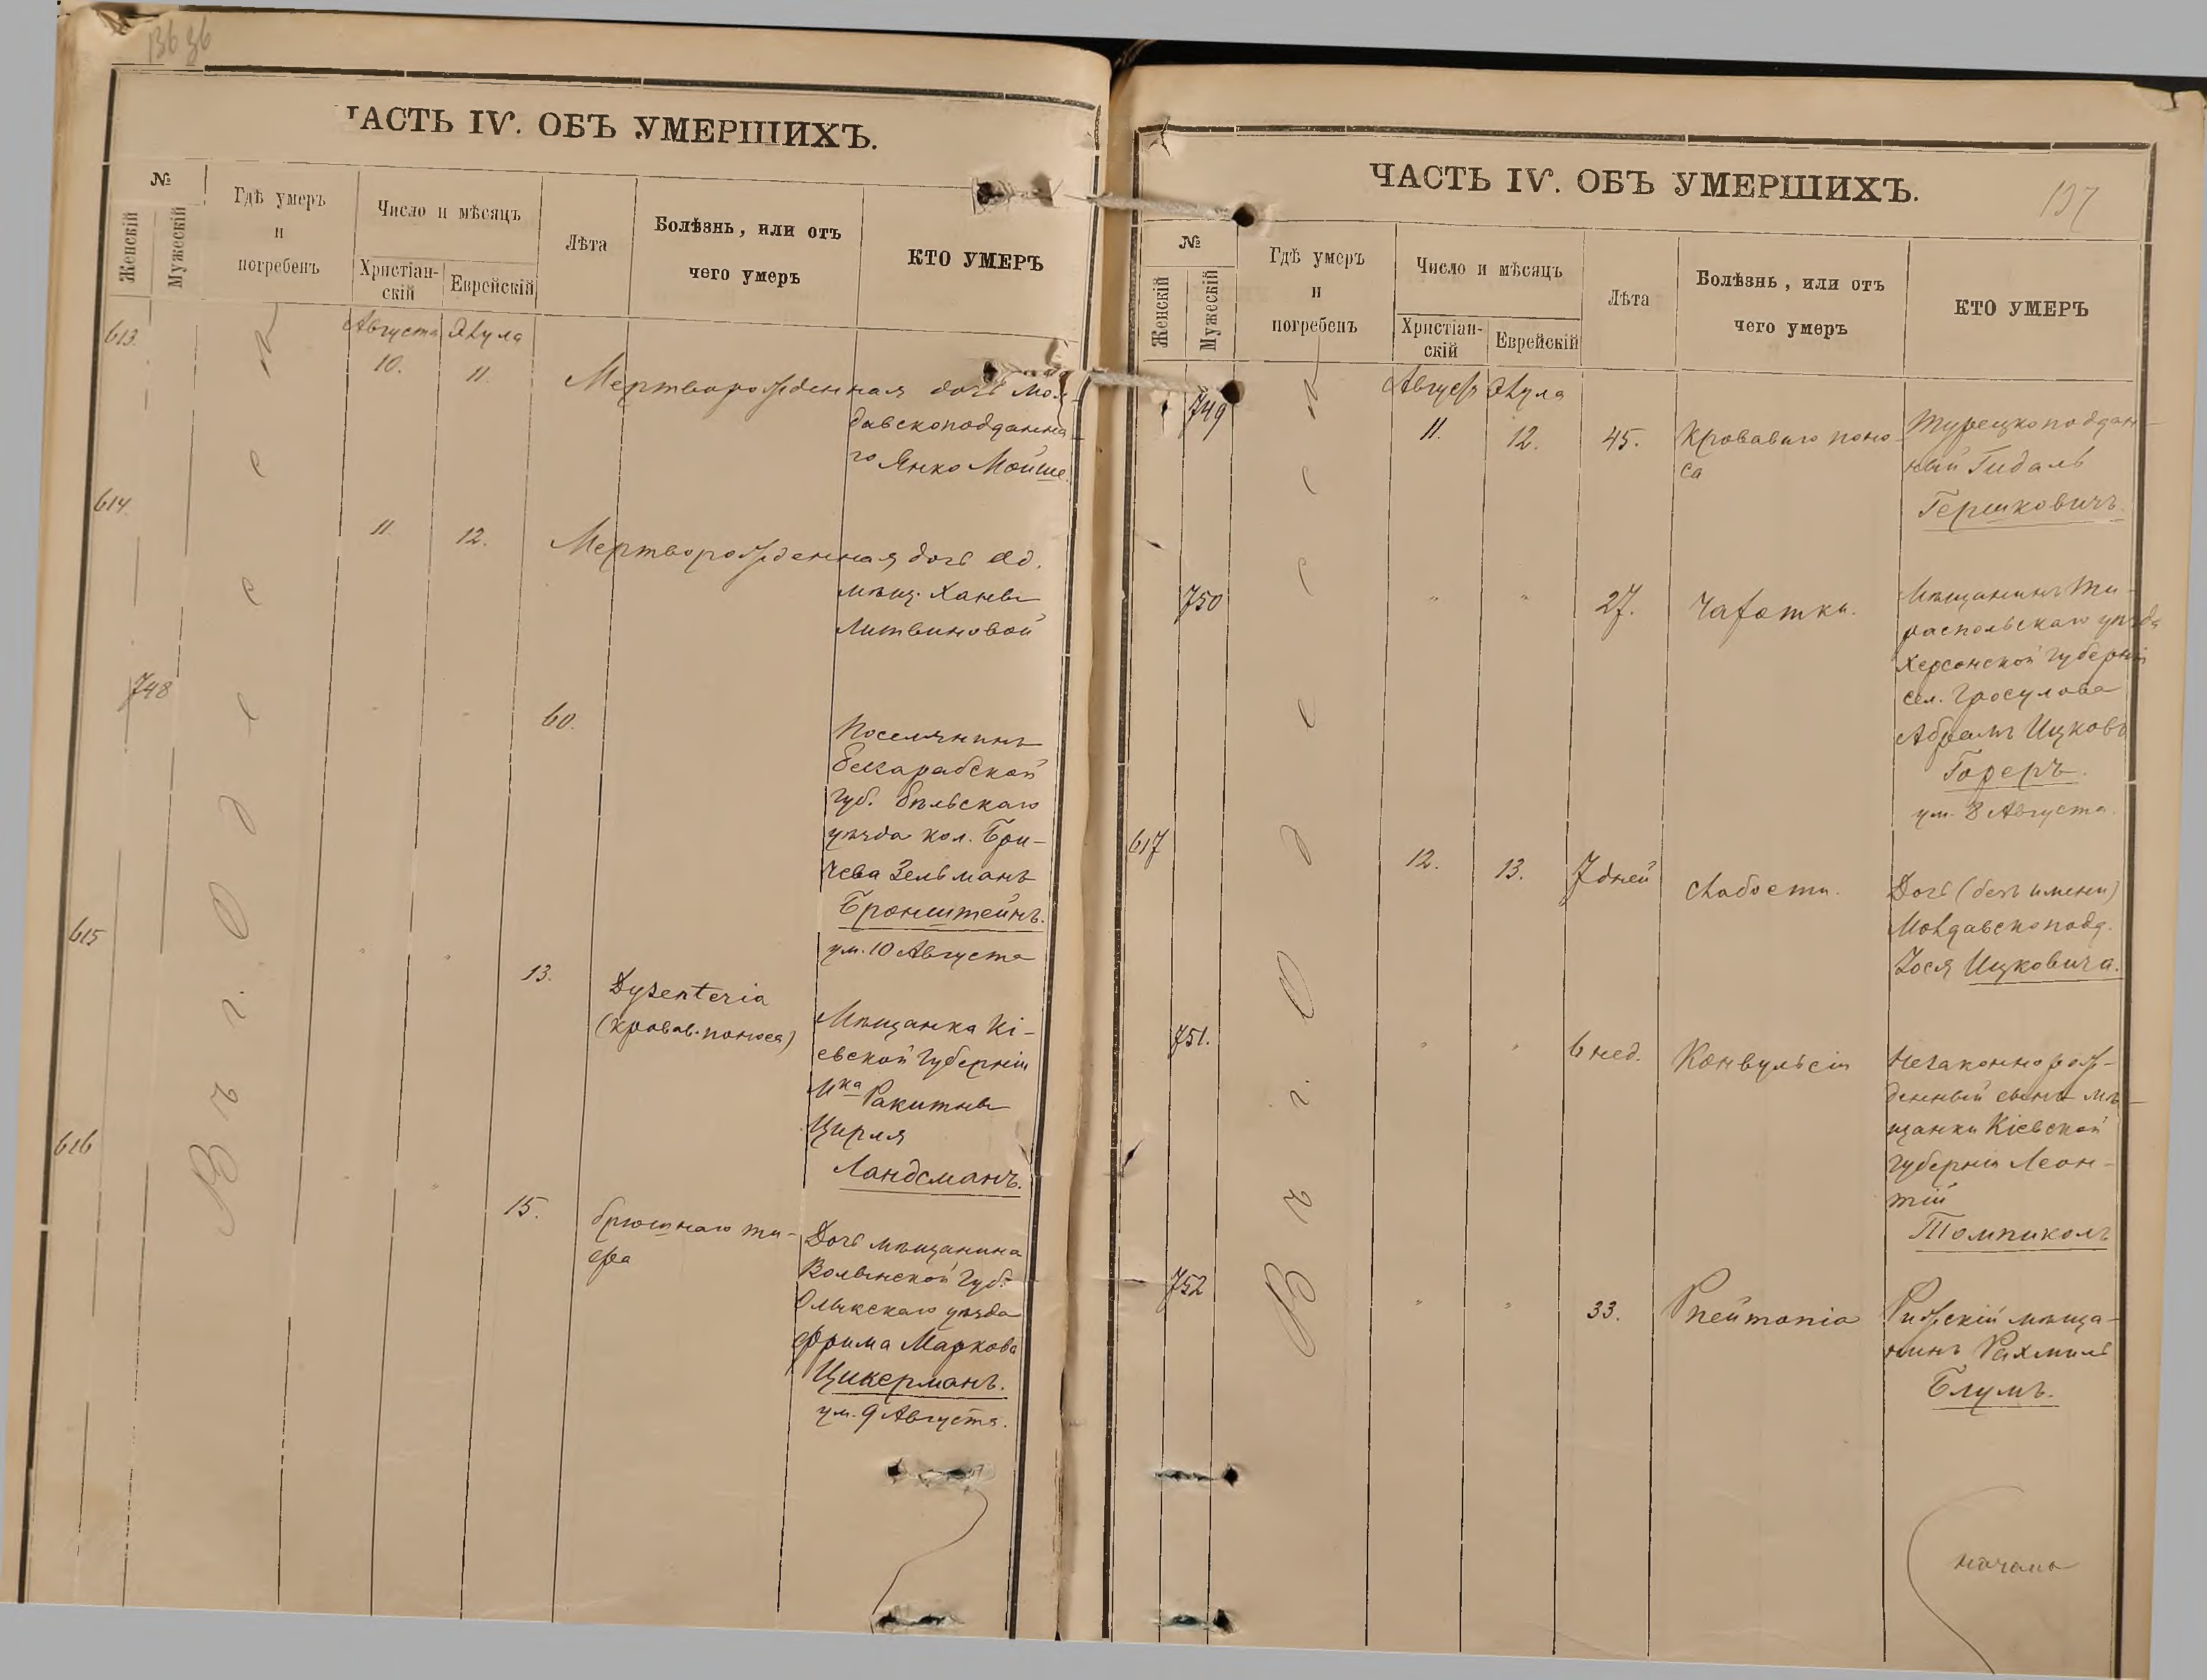 136 36
ЧАСТЬ IV. ОБЪ УМЕРШИХЪ.
№
Женскій
Мужескій
Гдѣ умеръ
и
погребенъ
Число и мѣсяцъ
Христіан-
скій
Еврейскій
Лѣта
Болѣзнь, или отъ
чего умеръ
КТО УМЕРЪ
Въ г. Одессѣ
613.
Августа
Элула
10.
11.
Мертворожденная дочь мол-
давскоподданна-
го Янко Мойше.
614.
11.
12.
Мертворожденная дочь Од.
мѣщ. Ханы
Литвиновой
748
"
"
60.
Поселянинъ
Бессарабской
губ. Бѣльскаго
уѣзда кол. Бри-
чева Зельманъ
Бронштейнъ.
ум. 10 Августа
615
"
"
13.
Dysenteria
(кровав. поноса)
Мѣщанка Кі-
евской губерніи
М-ка Ракитны
Цирля
Ландсманъ.
616
"
"
15.
брюшнаго ти-
фа
Дочь мѣщанина
Волынской губ.
уѣзда
Фрима Маркова
Цикерманъ.
ум. 9 Августа.
ЧАСТЬ IV. ОБЪ УМЕРШИХЪ.
137
№
Женскій
Мужескій
Гдѣ умеръ
и
погребенъ
Число и мѣсяцъ
Христіан-
скій
Еврейскій
Лѣта
Болѣзнь, или отъ
чего умеръ
КТО УМЕРЪ
Въ г. Одессѣ
749
Августа
Элула
11.
12.
45.
Кроваваго поно-
са
Турецкоподдан-
ный Гидаль
Гершковичъ.
750
"
"
27.
Чахотки.
Мѣщанинъ Ти-
распольскаго уѣзда
Херсонской губерніи
сел. Гросулова
Абрамъ Ицковъ
Гореръ.
ум. 8 Августа.
617
12.
13.
7 дней
слабости.
Дочь (безъ имени)
Молдавскоподд.
Зося Ицковича.
751.
"
"
6 нед.
Конвульсіи
Незаконнорож-
денный сынъ мѣ-
щанки Кіевской
губерніи Леон-
тій
Томпиколъ
752
"
"
33.
Pneumonia
Рижскій мѣща-
нинъ Рахмиль
Блумъ.